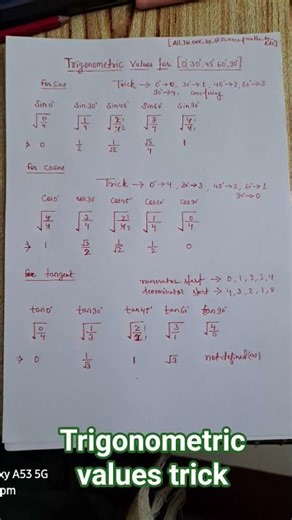 Trigonometric values for [0°, 30°, 45°, 60°, 90°]
for sine Trick → 0° → 0, 30° → 1, 45° → 2, 60° → 3
Sin0° Sin30° Sin45° Sin60° Sin90°
√0/4 √1/4 √2/4 √3/4 √4/4
⇒ 0 1/2 1/√2 1
for cosine
Trick → 0° → 4, 30° → 3, 45° → 2, 60° → 1
90° → 0
Cos0° Cos30° Cos45° Cos60° Cos90°
√4/4 √3/4 √2/4 √1/4 √0/4
⇒ 1 √3/2 1/√2 1/2 0
for tangent
numerator start → 0, 1, 2, 3, 4
denominator start → 4, 3, 2, 1, 0
tan0° tan30° tan45° tan60° tan90°
√0/4 √1/3 √2/2 √3/1
⇒ 0 1/√3 1 √3 not defined (∞)
Trigonometric
values trick
xy A53 5G
pm